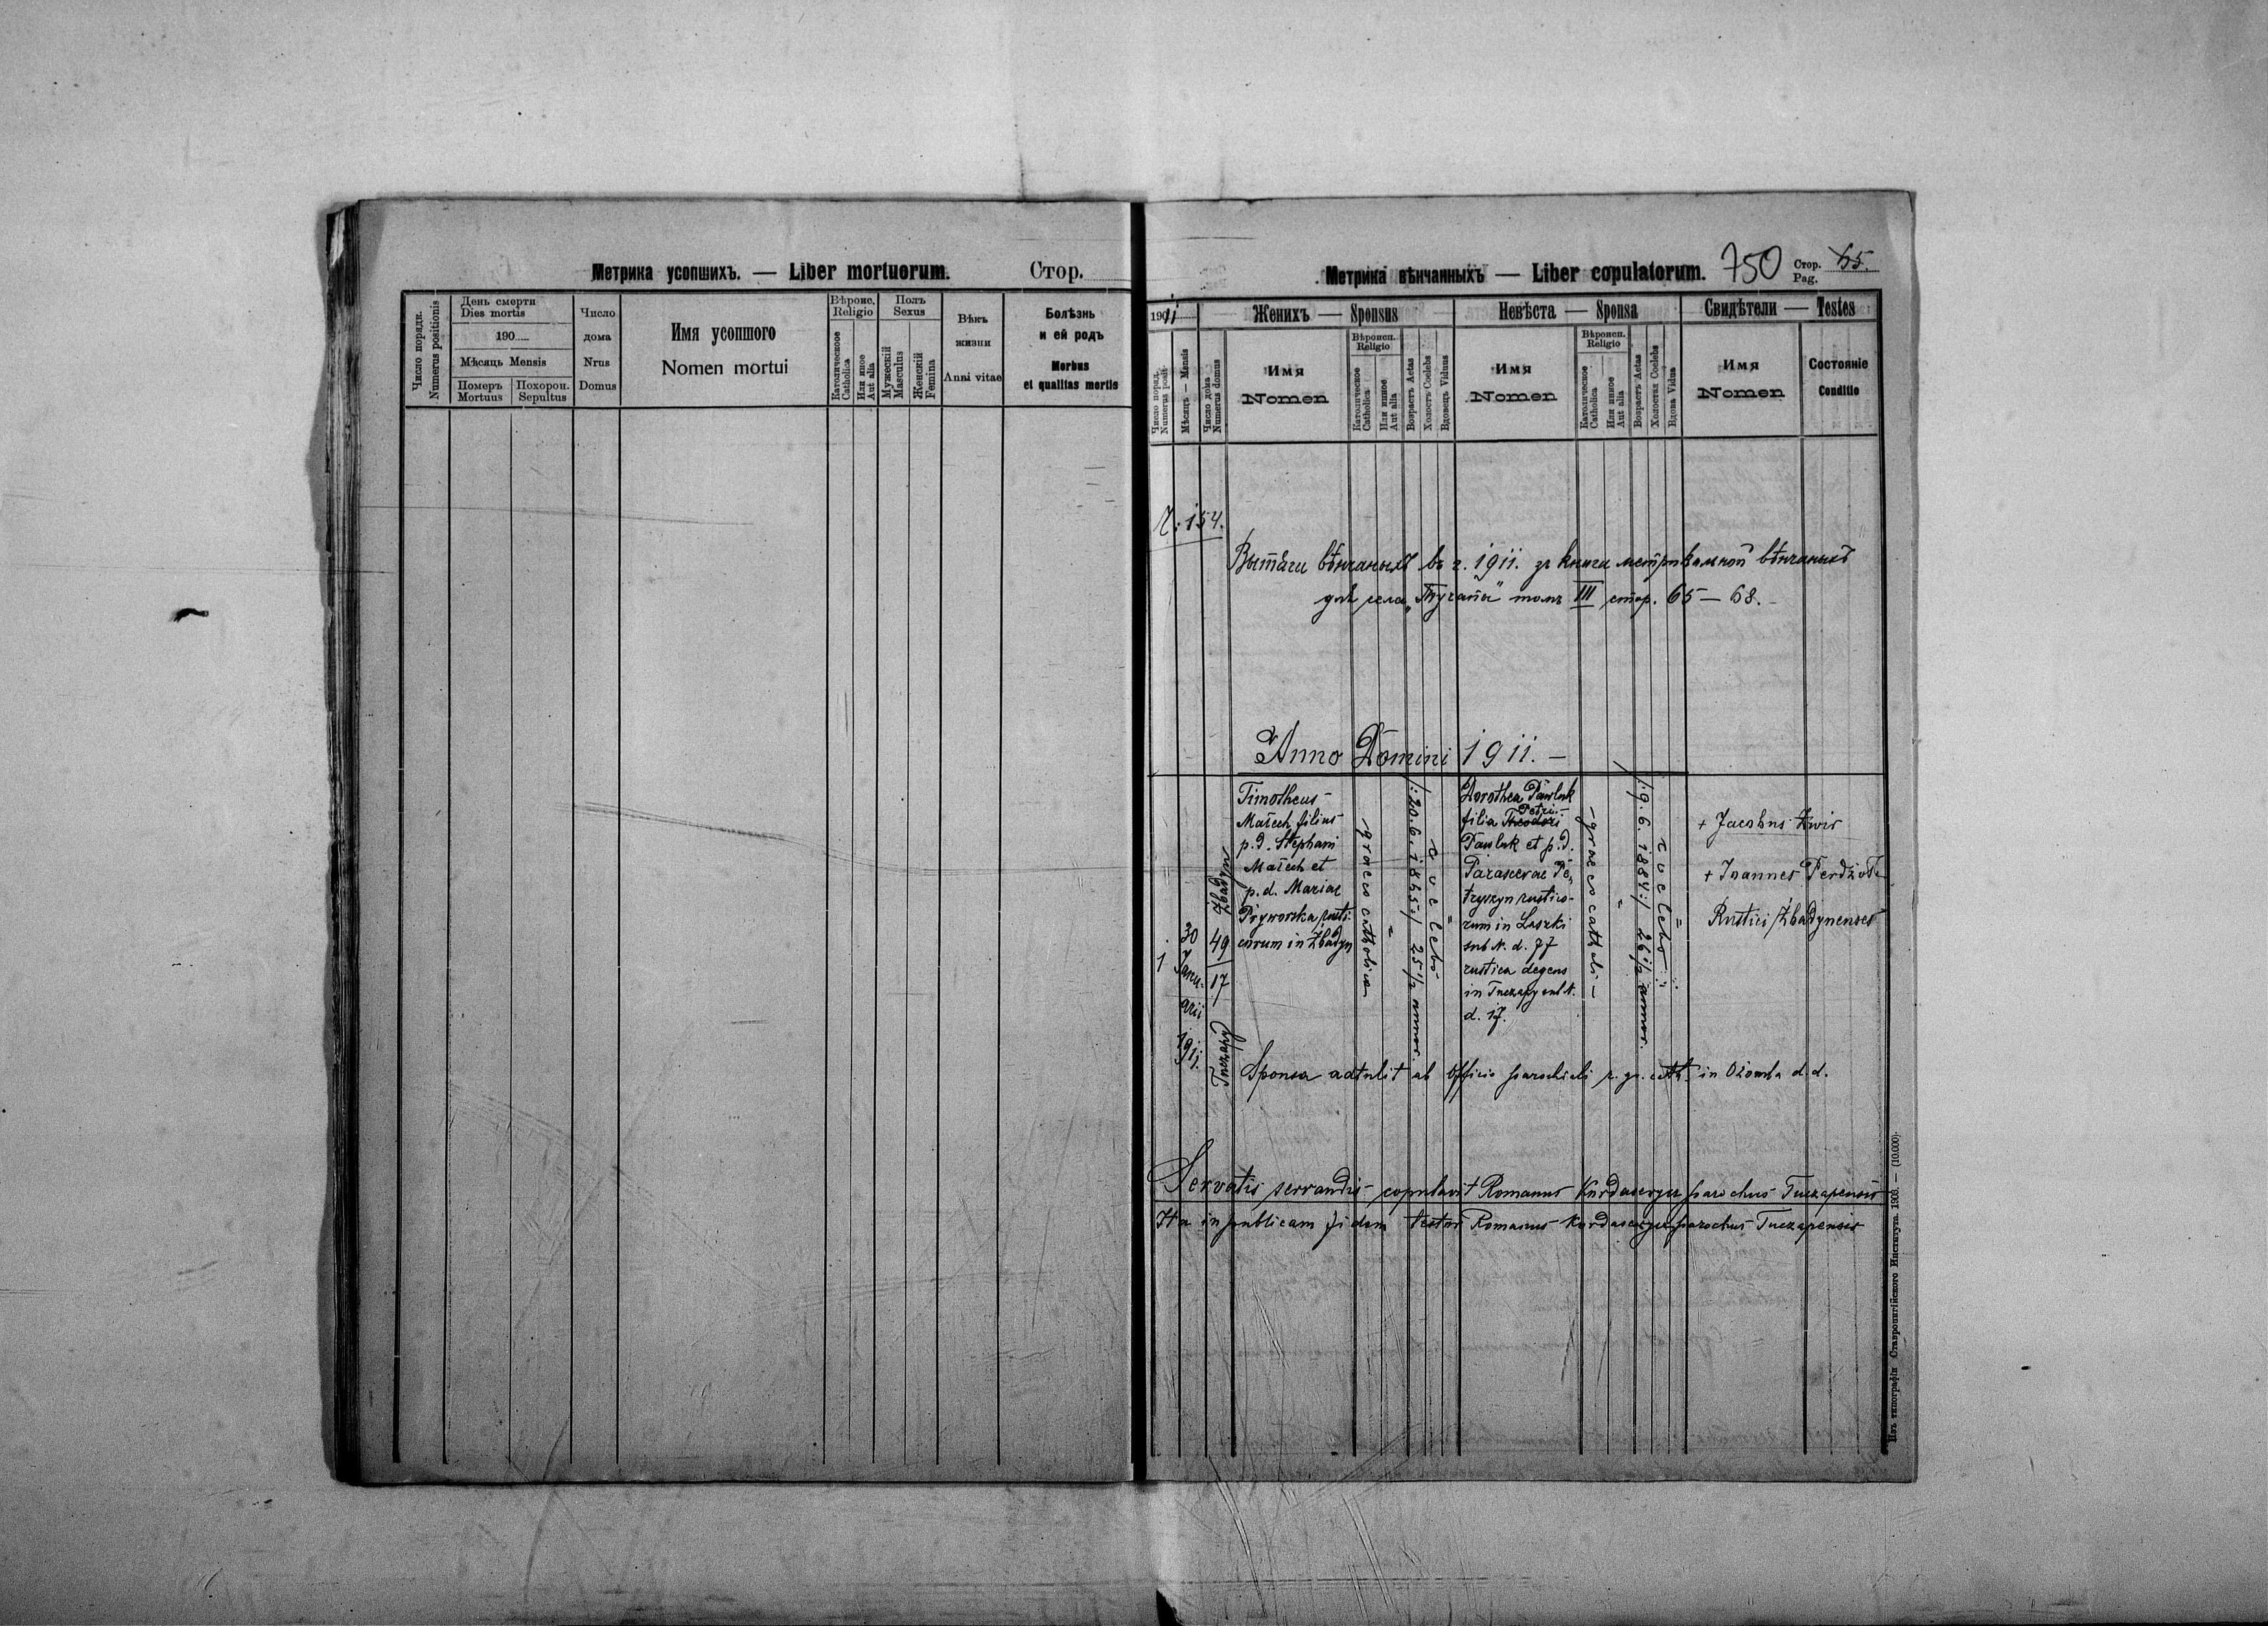 Метрика усопшихъ. — Liber mortuorum. Стор.
Число порядк.
Numerus positionis
День смерти
Dies mortis
190
Мѣсяць Mensis
Померъ
Mortuus
Похорон.
Sepultus
Число
дома
Nrus
Domus
Имя усопшого
Nomen mortui
Вѣроис.
Religio
Католическоое
Catholica
Или иное
Aut alia
Полъ
Sexus
Мужескій
Masculus
Женскій
Femina
Вѣкъ
жизни
Anni vitae
Болѣзнь
и ей родъ
Morbus
et qualitas mortis
Метрика вѣнчанныхъ — Liber copulatorum. 750 Стор. 65.
Pag.
1911
Число поряд.
Numerus posit.
Мѣсяць — Mensis
Число дома
Numerus domus
Женихъ — Sponsus
Имя
Nomen
Вѣроисп.
Religio
Католическое
Catholica
Или инное
Aut alia
Возрастъ Aetas
Холостъ Coelebs
Вдовецъ Viduus
Невѣста — Sponsa
Имя
Nomen
Вѣроисп.
Religio
Католическое
Catholica
Или инное
Aut alia
Возрастъ Aetas
Холостая Coelebs
Вдова Vidua
Свидѣтели — Testes
Имя
Nomen
Состояніе
Conditio
Ч: 154.
Вытяги вѣнчаныхъ въ г. 1911. зъ книги метрикальнои вѣнчаныхъ
для села „Тучапы" томъ III стор. 65 — 68.
Anno Domini 1911. —
1
30
Janu-
arii
1911.
Zbadyn
49
17
Tuczapy
Timotheus
Maćech filius
p. d. Stephani
Maćech et
p. d. Mariae
Pryworska rusti-
corum in Zbadyn
graeco catholica
"
/:20.6.1885:/ 25 1/2 annor.
coelebs
"
Dorothea Pawluk
filia Theodori Petri
Pawluk et p. d.
Parascevae Pe-
tryszyn rustico-
rum in Laszki
sub N. d. 77
rustica degens
in Tuczapy sub N.
d. 17.
— graeco cathol. —
"
/:9.6.1884:/ 26 1/2 annor.
coelebs
"
+ Jacobus Zwir
+ Joannes
Rustici Zbadynenses
Sponsa adtulit ab Officio parochiali r. gr. cath. in Ożomla d. d.
Servatis servandis copulavit Romanus Kordasevyez parochus Tuczapensis
Ita in publicam fidem testor Romanus Kordasevyez parochus Tuczapensis
Изъ типографіи Ставропигійского Института. 1908. — (10.000).